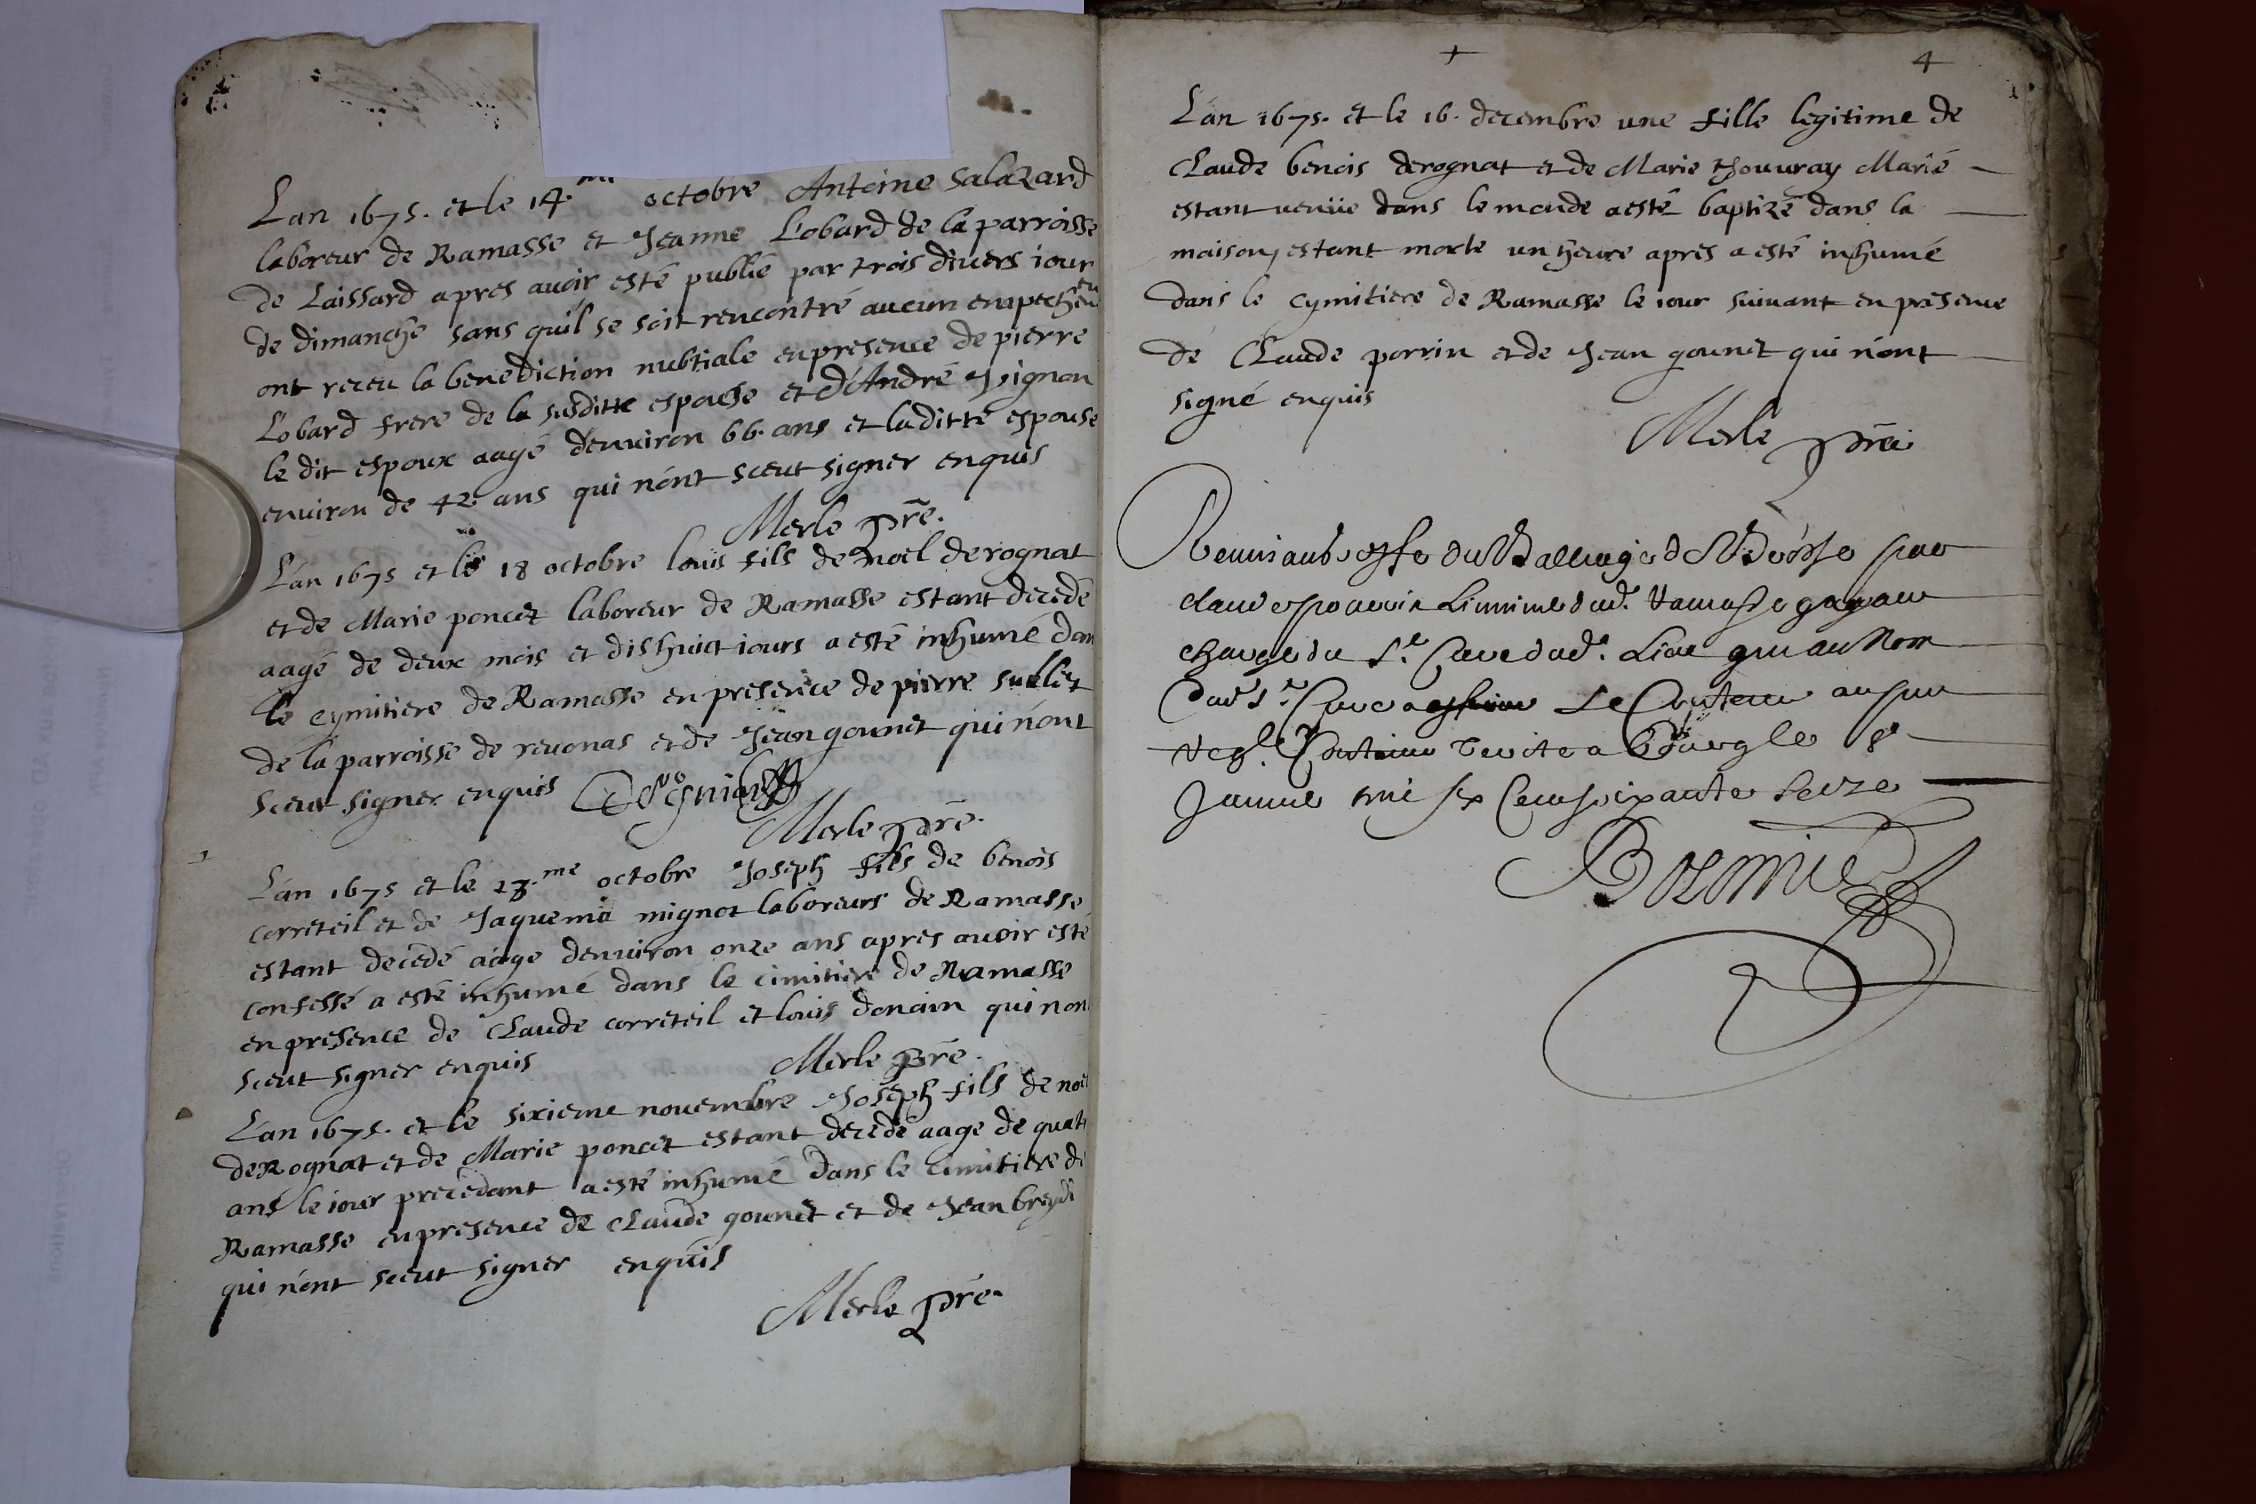 Lan 1675. et le 14.me octobre Antoine salazard
laboreur de Ramasse et Jeanne Lobard de la parroisse
de Laissard apres avoir esté publié par trois divers iour
de dimanche sans quil se soit rencontré aucun empechem
ont receu la benediction nubtiale en presence de pierre
Lobard frere de la susditte espouse et d'André pignon
le dit espoux aagé denuiron 66. ans et laditte espouse
enuiron de 42. ans qui nont sceut signer enquis
Merle pre.
Lan 1675 et le 18 octobre louis fils de noel derognat
et de Marie poncet laboreur de Ramasse estant decedé
aagé de deux mois et dishuict iours a esté inhumé dan
le cymitiere de Ramasse en presence de pierre sublet
de la parroisse de reuonas et de Jean gounet qui nont
sceut signer enquis
Merle pre.
Lan 1675 et le 23.me octobre Joseph fils de benois
correteil et de Jaquema mignot laboreurs de Ramasse
estant decedé aâge denuiron onze ans apres auoir esté
confessé a esté inhumé dans le cimitiere de Ramasse
en presence de Claude correteil et louis donain qui non
sceut signer enquis
Merle pre.
Lan 1675. et le sixieme nouembre Joseph fils de noe
deRognat et de Marie poncet estant decedé aage de quat
ans le iour precedant a esté inhumé dans le cimitiere de
Ramasse en presence de Claude gounet et de Jean
qui nont sceut signer enquis
Merle pre.
4
Lan 1675. et le 16. decembre une fille legitime de
Claude benois derognat et de Marie Marié
estant venüe dans le monde a esté baptizé dans la
maison, estant morte un heure apres a esté inhumé
dans le cymitiere de Ramasse le iour suivant en presence
de Claude perrin et de Jean gounet qui nont
signé enquis
Merle pre
Remis au greffe du Balliage de Bresse par
claude
charge du Sr. Cure dud. Lieu qui au nom
dud Sr. Cure a le Contenu au
a Bourg le 8e
Januie mil six Cens soixante seize